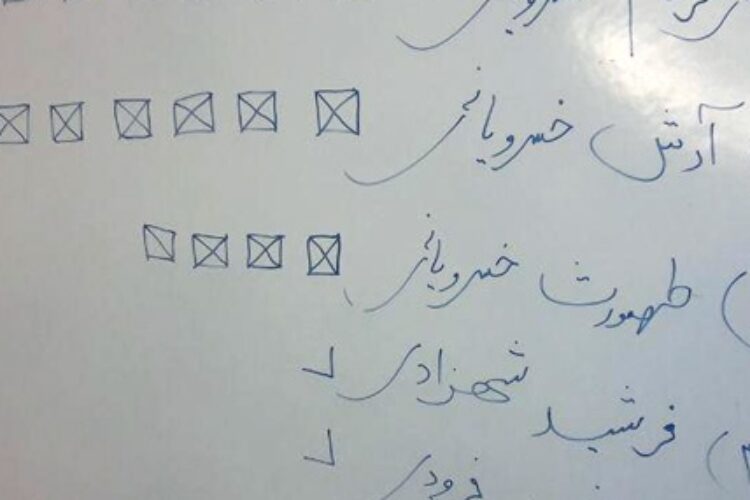 آرش خسرویانی
طهمورث خسرویانی
فرشید شهزادی